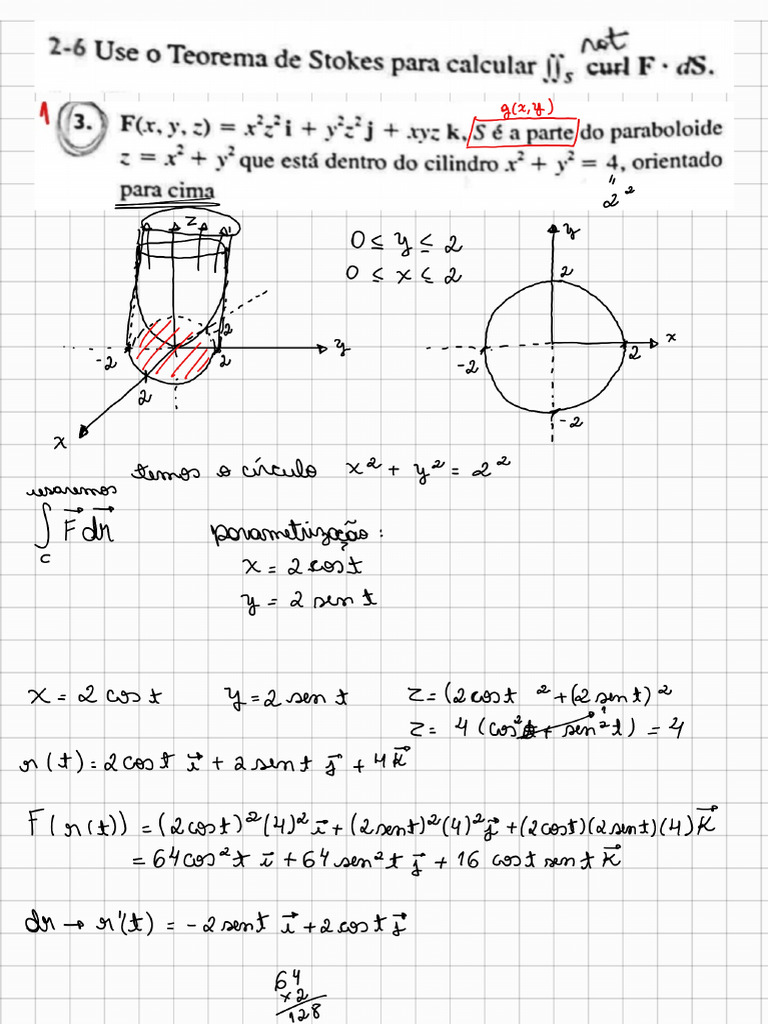 rot
2-6 Use o Teorema de Stokes para calcular ∬_S curl F · dS.
1 3. F(x, y, z) = x²z² i + y²z² j + xyz k, S é a parte do paraboloide
g(x,y)
z = x² + y² que está dentro do cilindro x² + y² = 4, orientado
para cima
" 2²
z
0 ≤ y ≤ 2
0 ≤ x ≤ 2
y
2
x
-2
2
-2
-2
2
2
y
2
x
temos o círculo x² + y² = 2²
usaremos
∫_C F⃗ dr⃗
parametrização:
x = 2 cos t
y = 2 sen t
x = 2 cos t y = 2 sen t z = (2 cos t ² + (2 sen t)²
z = 4 (cos²t + sen²t) = 4
1
r(t) = 2 cos t i⃗ + 2 sen t j⃗ + 4 k⃗
F(r(t)) = (2 cos t)²(4)² i⃗ + (2 sen t)²(4)² j⃗ + (2 cos t)(2 sen t)(4) k⃗
= 64 cos²t i⃗ + 64 sen²t j⃗ + 16 cos t sen t k⃗
dr → r'(t) = -2 sen t i⃗ + 2 cos t j⃗
64
×2
128